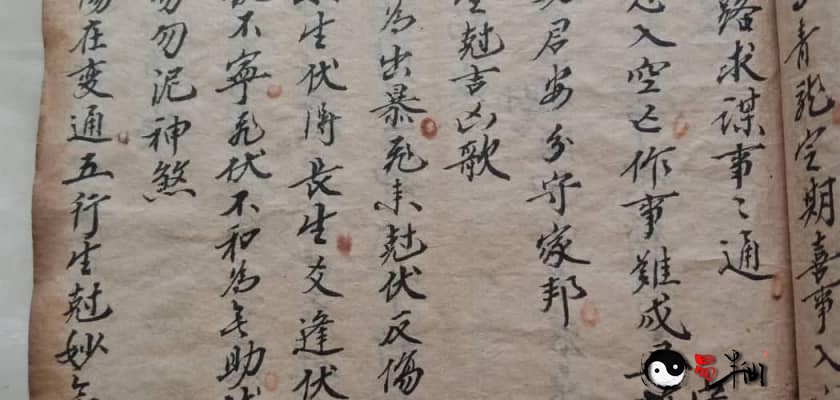 青龍定期喜事入
路求謀事〻通
入空亡作事難成
君安分守家邦
尅吉凶歌
為出暴飛来尅伏反傷
生伏淂長生爻逢伏
不寧飛伏不和為無助
勿泥神煞
在变通五行生尅妙
易